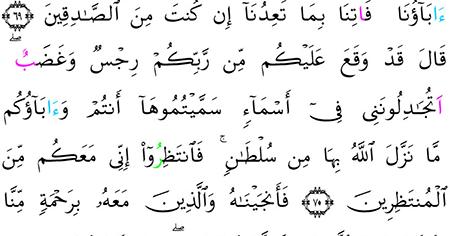 ءَابَآؤُنَا فَاتِنَا بِمَا تَعِدُنَآ إِن كُنتَ مِنَ ٱلصَّٰدِقِينَ ٦٩
قَالَ قَدْ وَقَعَ عَلَيْكُم مِّن رَّبِّكُمْ رِجْسٌ وَغَضَبٌ
اَتُجَٰدِلُونَنِى فِىٓ أَسْمَآءٍ سَمَّيْتُمُوهَآ أَنتُمْ وَءَابَآؤُكُم
مَّا نَزَّلَ ٱللَّهُ بِهَا مِن سُلْطَٰنٍ ۚ فَٱنتَظِرُوٓا۟ إِنِّى مَعَكُم مِّنَ
ٱلْمُنتَظِرِينَ ٧٠ فَأَنجَيْنَٰهُ وَٱلَّذِينَ مَعَهُۥ بِرَحْمَةٍ مِّنَّا